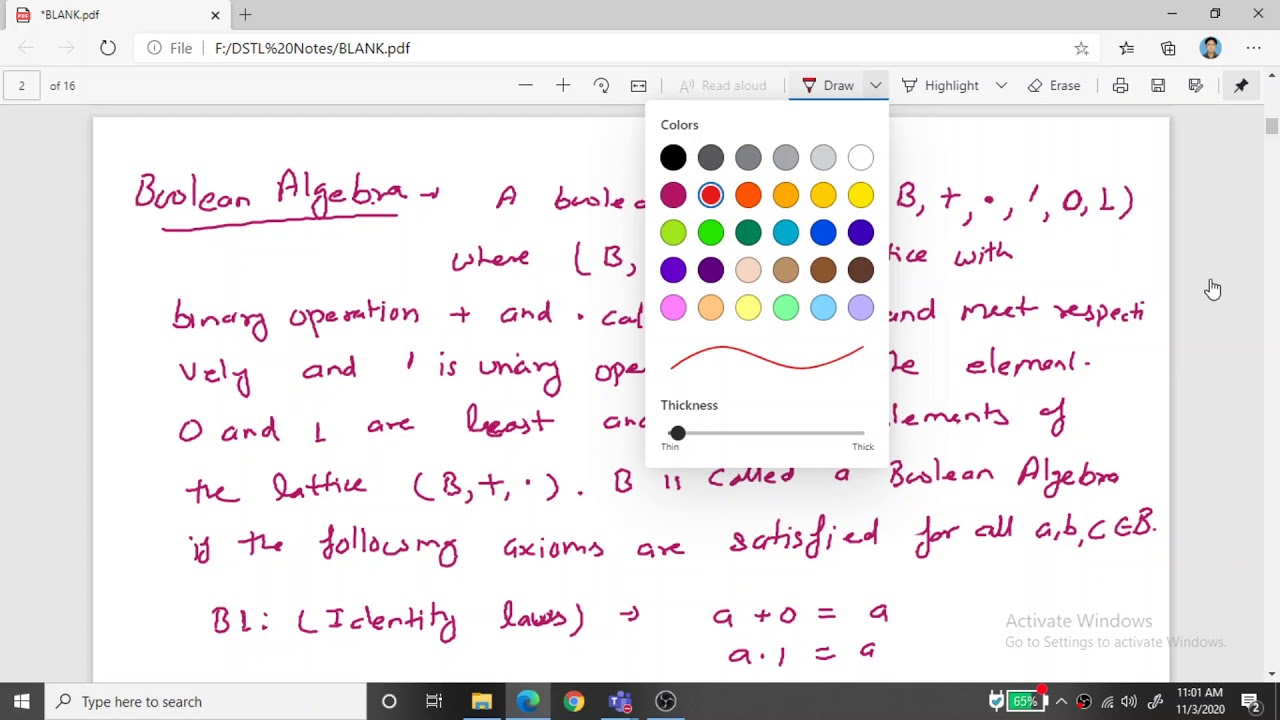 *BLANK.pdf
File F:/DSTL%20Notes/BLANK.pdf
2 of 16 Read aloud Draw Highlight Erase
Colors
Thickness
Thin Thick
Boolean Algebra → A boolea B, +, ·, ', 0, 1)
where (B, tice with
binary operation + and · cal and meet respecti
vely and ' is unary ope element.
0 and 1 are least an elements of
the lattice (B, +, ·). B is called a Boolean Algebra
if the following axioms are satisfied for all a, b, c ∈ B.
B1: (Identity laws) → a + 0 = a
a · 1 = a
Activate Windows
Go to Settings to activate Windows.
Type here to search 65% 11:01 AM
11/3/2020 2